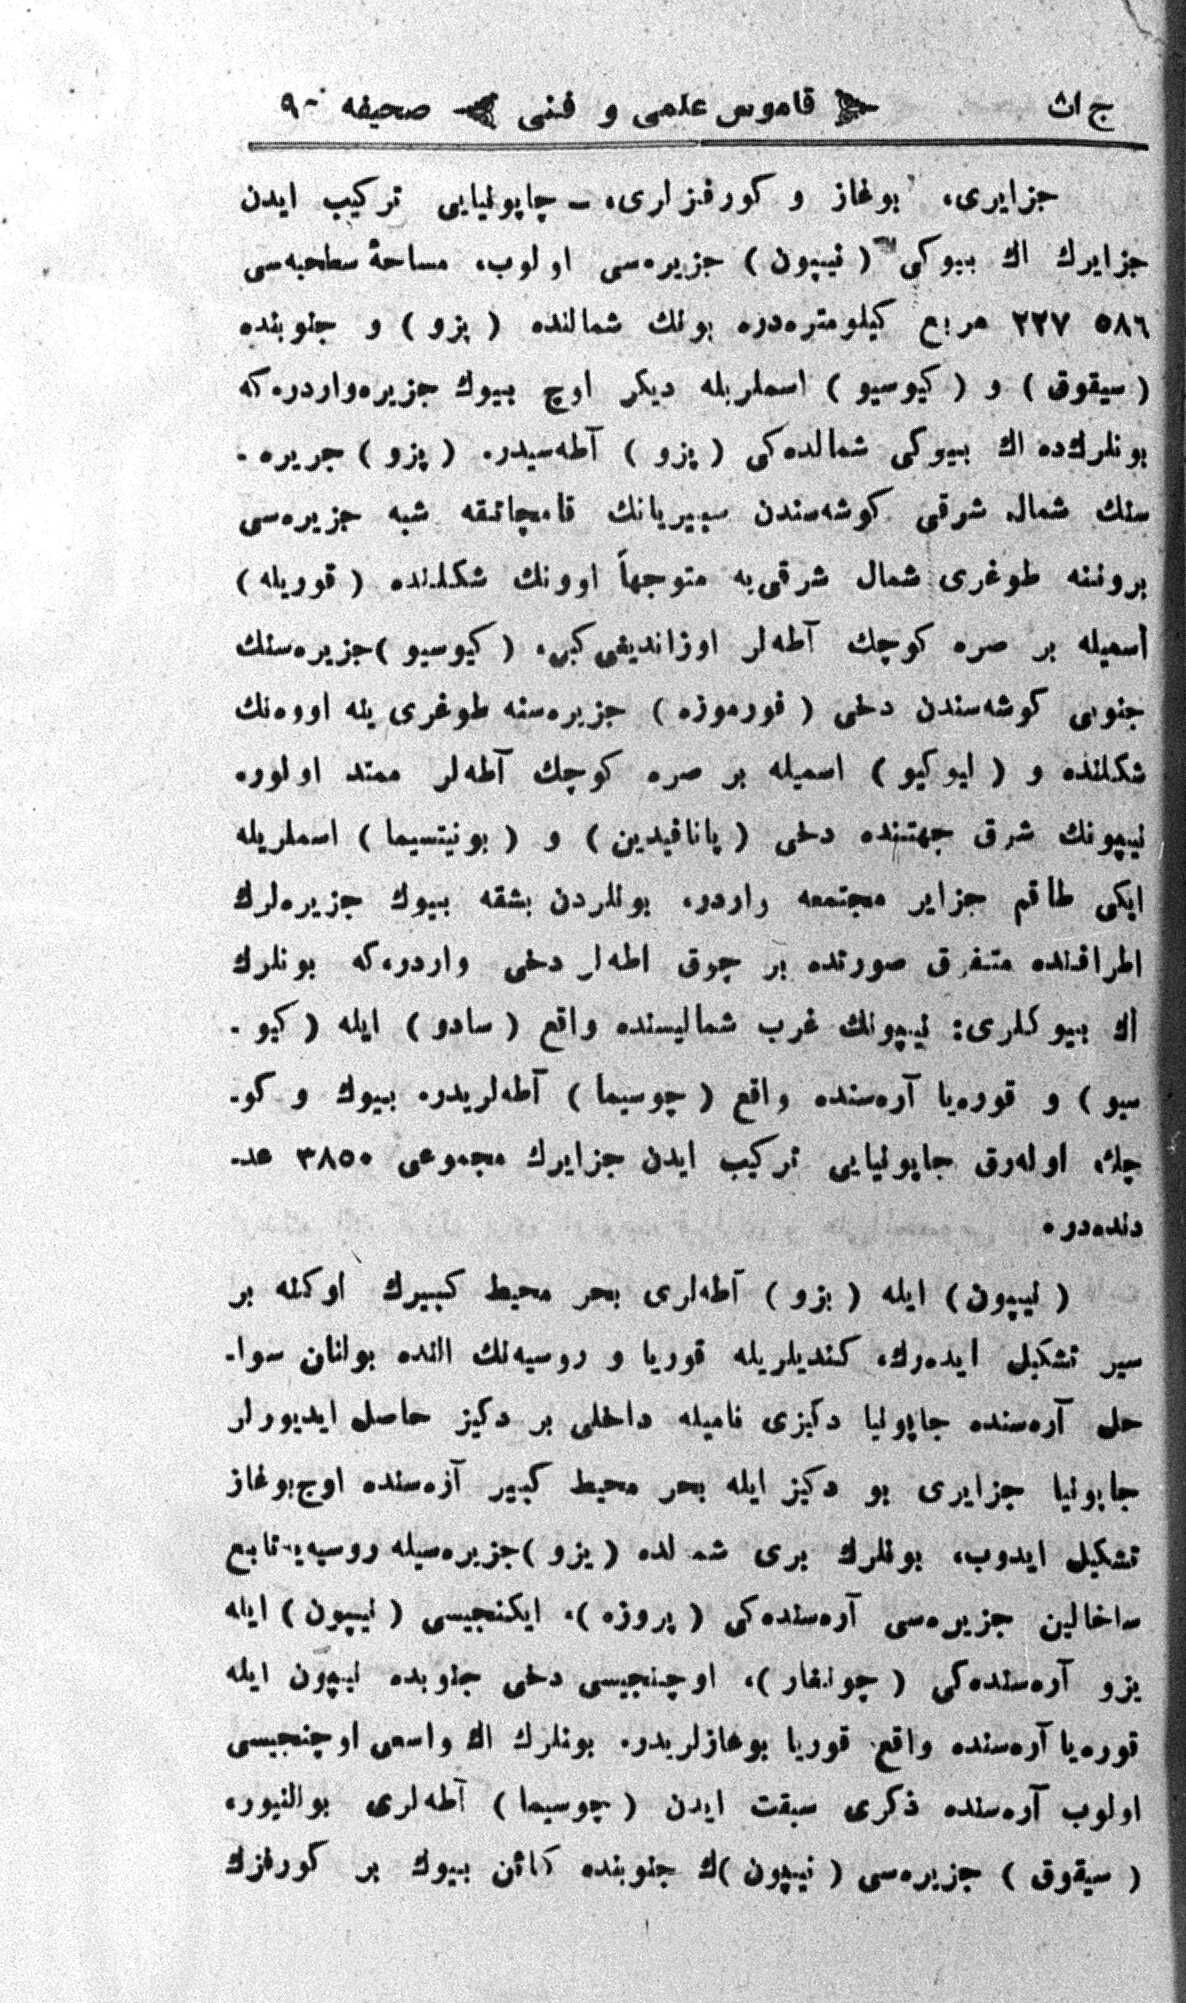 ج اث قاموس علمی و فنی صحیفه ۹۰
جزایری، بوغاز و کورفزلری، ــ چاپونیایی ترکیب ایدن
جزایرك اڭ بیوکی (نیپون) جزیره‌سی اولوب، مساحهٔ سطحیه‌سی
٥٨٦ ٢٢٧ مربع کیلومتره‌دره بونك شمالنده (یزو) و جنوبنده
(سیقوق) و (کیوسیو) اسملریله دیکر اوچ بیوك جزیره‌واردرکه
بونلرك‌ده اڭ بیوکی شمالده‌کی (یزو) آطه‌سیدر. (یزو) جزیره ـ
سنك شمال شرقی کوشه‌سندن سیبریانك قامچاتقه شبه جزیره‌سی
بروننه طوغری شمال شرقی‌یه متوجهاً اوونك شکلنده (قوریله)
أسمیله بر صره کوچك آطه‌لر اوزاندیغی‌کبی، (کیوسیو)جزیره‌سنك
جنوبی کوشه‌سندن دخی (فورموزه) جزیره‌سنه طوغری ینه اووه‌نك
شکلنده و (لیوکیو) اسمیله بر صره کوچك آطه‌لر ممتد اولور.
نیپونك شرق جهتنده دخی (پانافیدین) و (بونیتسیما) اسملریله
ایکی طاقم جزایر مجتمعه واردر، بونلردن بشقه بیوك جزیره‌لرك
اطرافنده متفرق صورتده بر چوق اطه‌لر دخی واردر،که بونلرك
أڭ بیوکلری: نیپونك غرب شمالیسنده واقع (سادو) ایله (کیو ـ
سیو) و قوره‌یا آره‌سنده واقع (چوسیما) آطه‌لریدر. بیوك و کو ـ
چك اوله‌رق جاپونیایی ترکیب ایدن جزایرك مجموعی ٣٨٥٠ عد ـ
دنده‌در.
(نیپون) ایله (یزو) آطه‌لری بحر محیط کبیرك اوکنه بر
سیر تشکیل ایده‌رك، کندیلریله قوریا و روسیه‌نك النده بولنان سوا ـ
حل آره‌سنده جاپونیا دکیزی نامیله داخلی بر دکیز حاصل ایدیورلر
جاپونیا جزایری بو دکیز ایله بحر محیط کبیر آره‌سنده اوچ‌بوغاز
تشکیل ایدوب، بونلرك بری شمالده (یزو)جزیره‌سیله روسیه‌یه تابع
ساخالین جزیره‌سی آره‌سنده‌کی (پروزه)، ایکنجیسی (نیپون) ایله
یزو آره‌سنده‌کی (چونغار)، اوچنجیسی دخی جنوبده نیپون ایله
قوره‌یا آره‌سنده واقع قوریا بوغازلریدر. بونلرك اڭ واسعی اوچنجیسی
اولوب آره‌سنده ذکری سبقت ایدن (چوسیما) آطه‌لری بوالنیور،
(سیقوق) جزیره‌سی (نیپون)ك جنوبنده کائن بیوك بر کورفزك